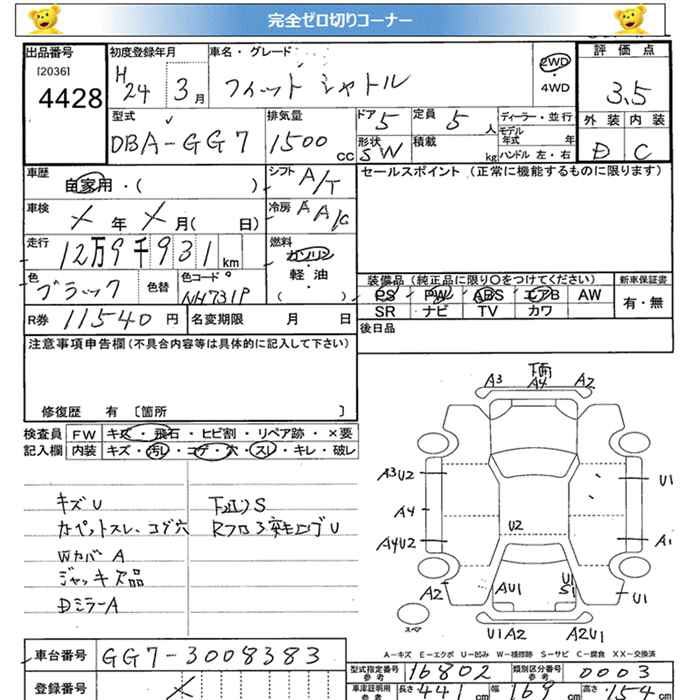 完全ゼロ切りコーナー
出品番号 初度登録年月 車名・グレード 評価点
[2036] H
4428 24 3月 フィットシャトル 2WD・4WD 3.5
型式 排気量 ドア 5 定員 5人 ディーラー・並行 外装 内装
DBA-GG7 1500cc 形状 SW 積載 kg モデル年式 年 ハンドル 左・右 D C
車歴 自家用・( ) シフト A/T セールスポイント (正常に機能するものに限ります)
車検 × 年 × 月( 日) 冷房 AA/C
走行 12万9千931km 燃料 ガソリン・軽油 ( )
色 ブラック 色替 色コード NH731P 装備品 (純正品に限り○をつけてください) 新車保証書
PS PW ABS エアB AW 有・無
SR ナビ TV カワ
R券 11540円 名変期限 月 日 後日品
注意事項申告欄 (不具合内容等は具体的に記入して下さい)
修復歴 有 [箇所 ]
検査員 FW キズ・飛石・ヒビ割・リペア跡・×要
記入欄 内装 キズ・汚レ・コゲ・穴・スレ・キレ・破レ
キズU
カーペットスレ、コゲ穴
WカバーA
ジャッキ欠品
DミラーA
下廻りS
下南
A3 A4 A2
A3U2 U1
A4
A4U2 A1
U2
AU1 U1
S1
A2 U1
スペア
U1A2 A2U1
A-キズ E-エクボ U-凹み W-補修跡 S-サビ C-腐食 XX-交換済
車台番号 GG7-3008383
型式指定番号 16802 類別区分番号 0003
登録番号 車庫証明用参考 長さ 441cm 幅 169cm 高さ 154cm